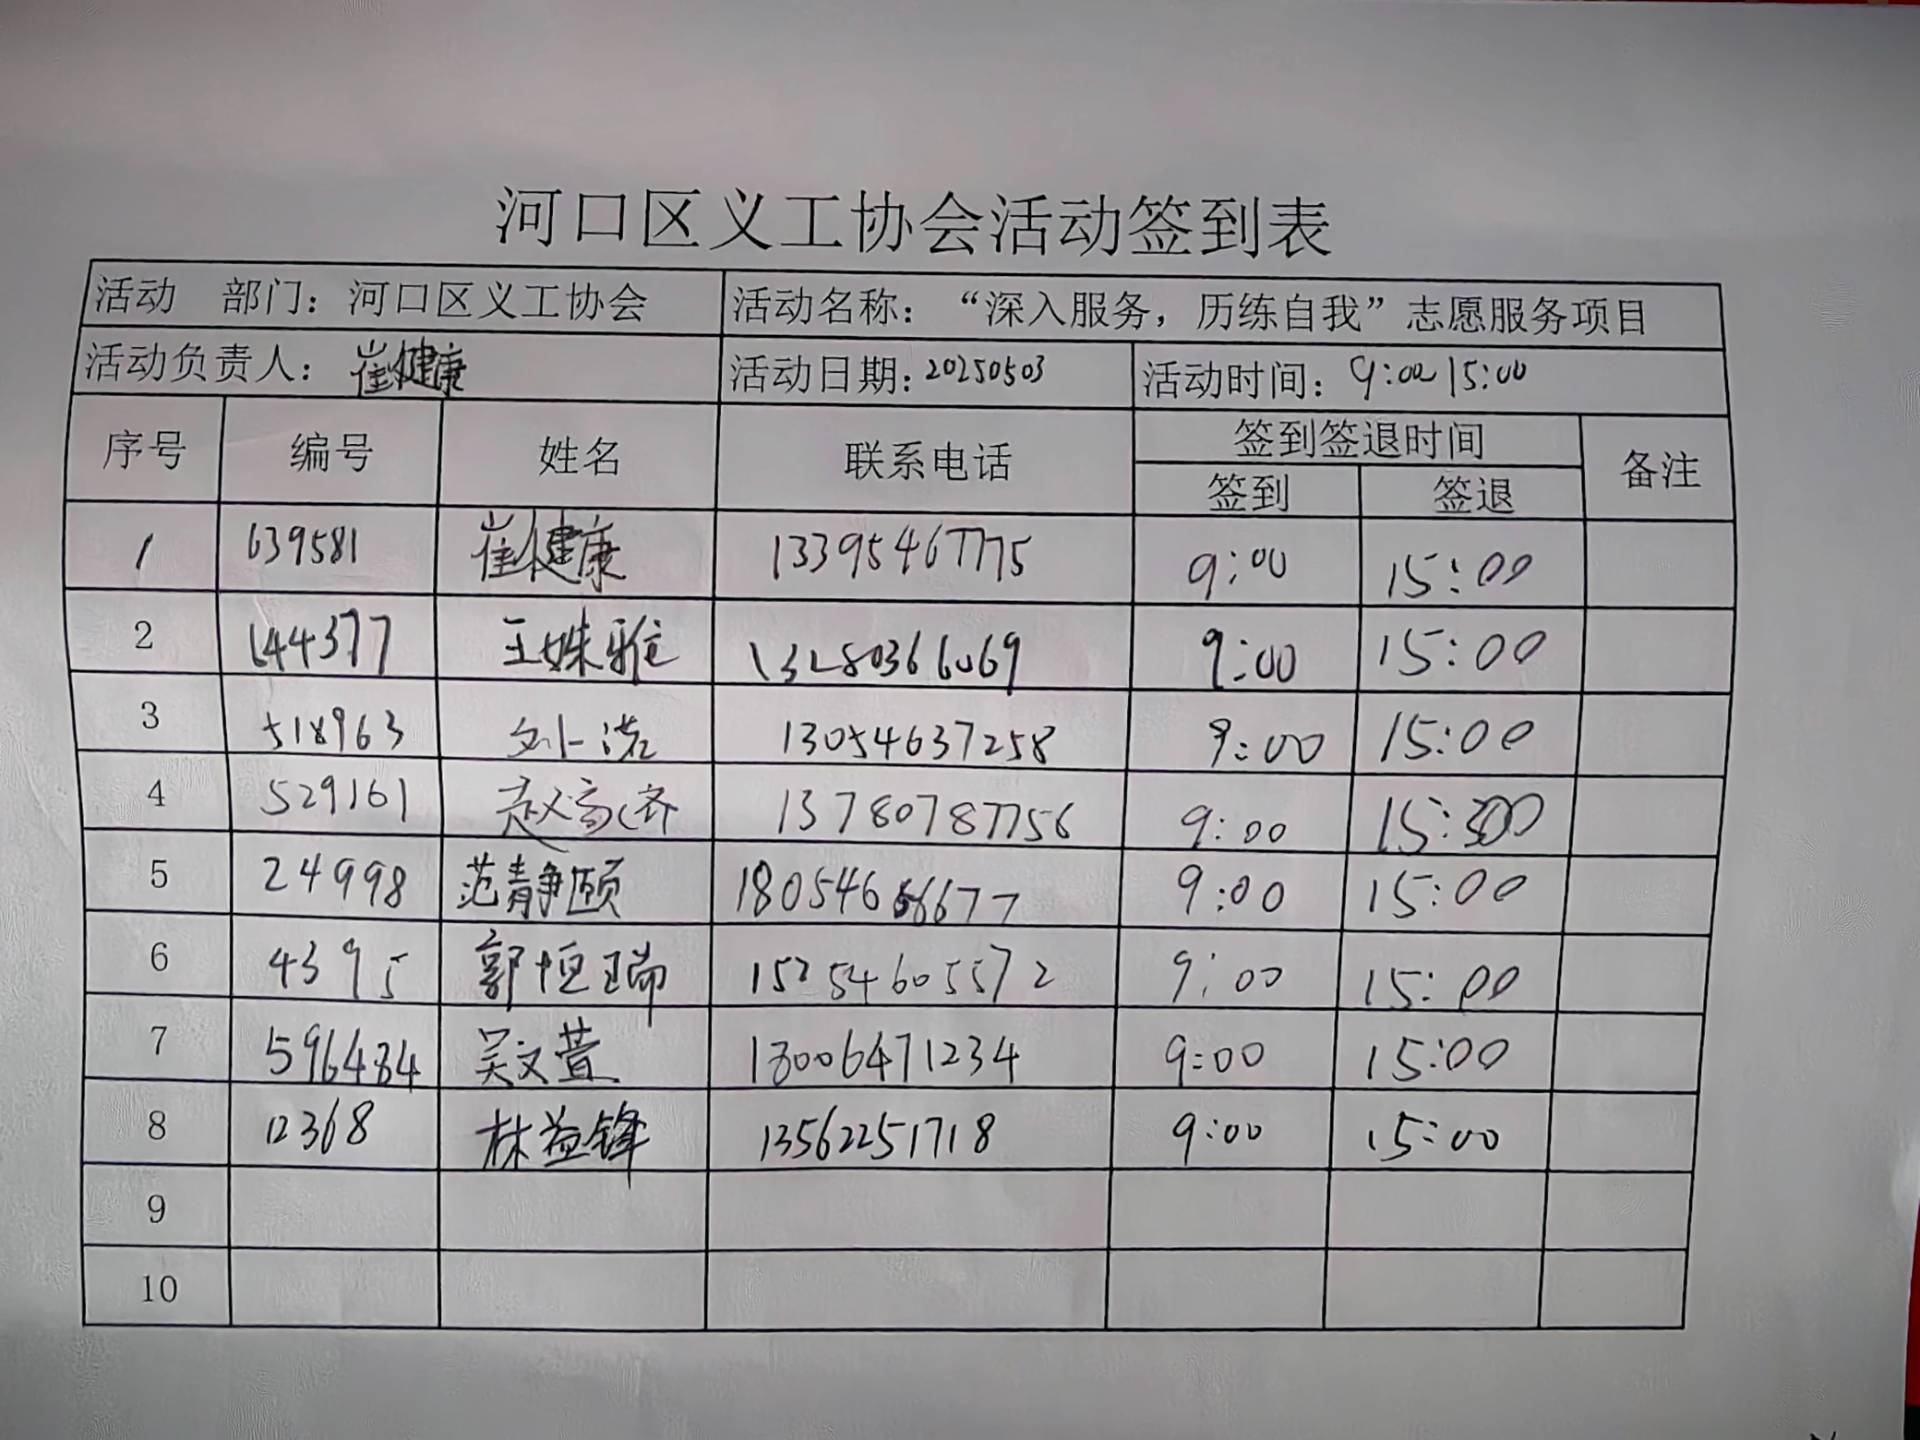 河口区义工协会活动签到表
活动 部门：河口区义工协会 活动名称：“深入服务，历练自我”志愿服务项目
活动负责人：崔健康 活动日期：20250503 活动时间：9:00 15:00
序号 编号 姓名 联系电话 签到签退时间 备注
签到 签退
1 639581 崔健康 13395467775 9:00 15:00
2 144377 王姝雅 13280366069 9:00 15:00
3 518963 13054637258 9:00 15:00
4 529161 13780787756 9:00 15:00
5 24998 范静颐 18054666677 9:00 15:00
6 4395 郭恒瑞 15254605572 9:00 15:00
7 596484 吴文萱 18006471234 9:00 15:00
8 12368 林益锋 13562251718 9:00 15:00
9
10